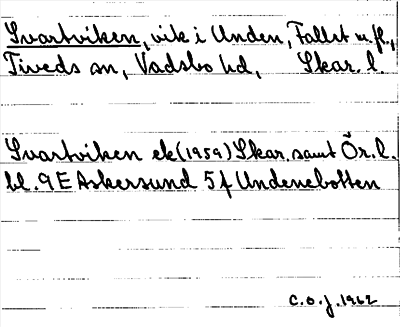 Svartviken, vik i Unden, Fallet m.fl.,
Tiveds sn, Vadsbo hd, Skar. l.
Svartviken ek (1959) Skar. samt Ör. l.
bl. 9 E Askersund 5 f Undenebotten
C.O.J. 1962